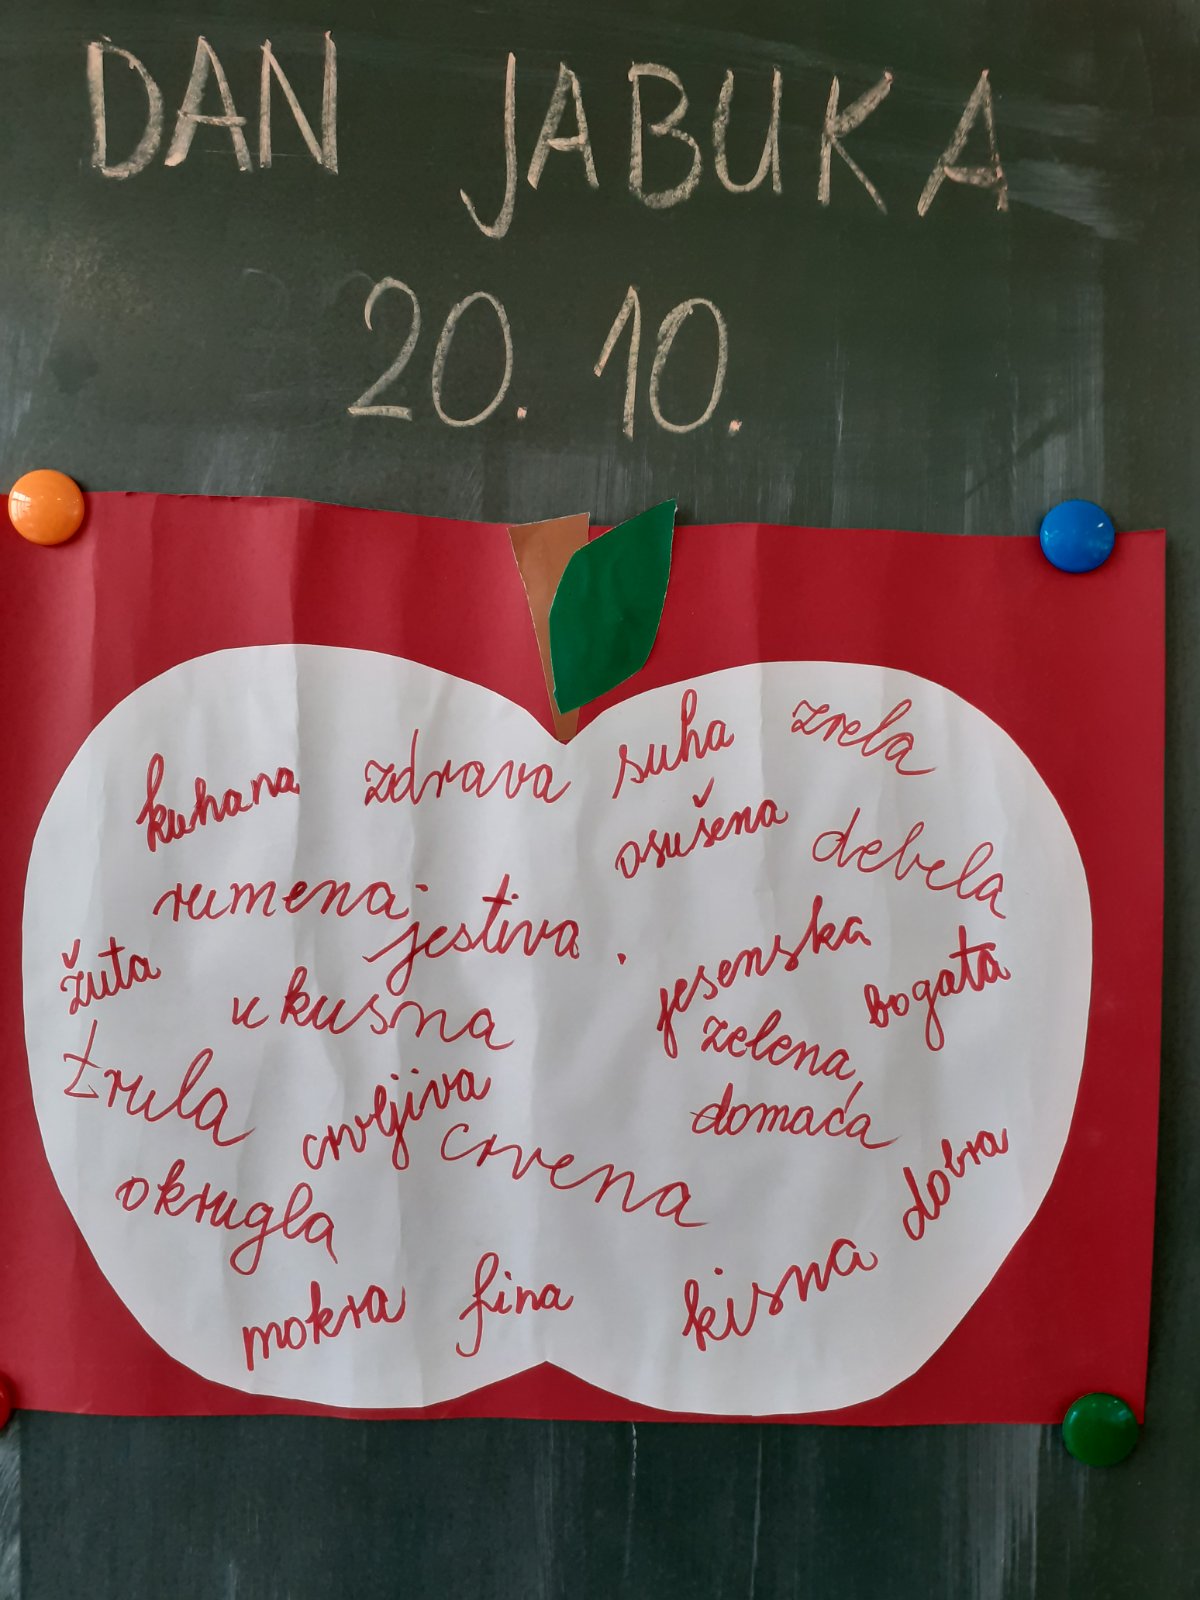 DAN JABUKA
20. 10.
kuhana zdrava suha zrela
osušena debela
rumena jestiva. jesenska
žuta ukusna zelena bogata
trula crvljiva domaća
okrugla crvena dobra
mokra fina kisna